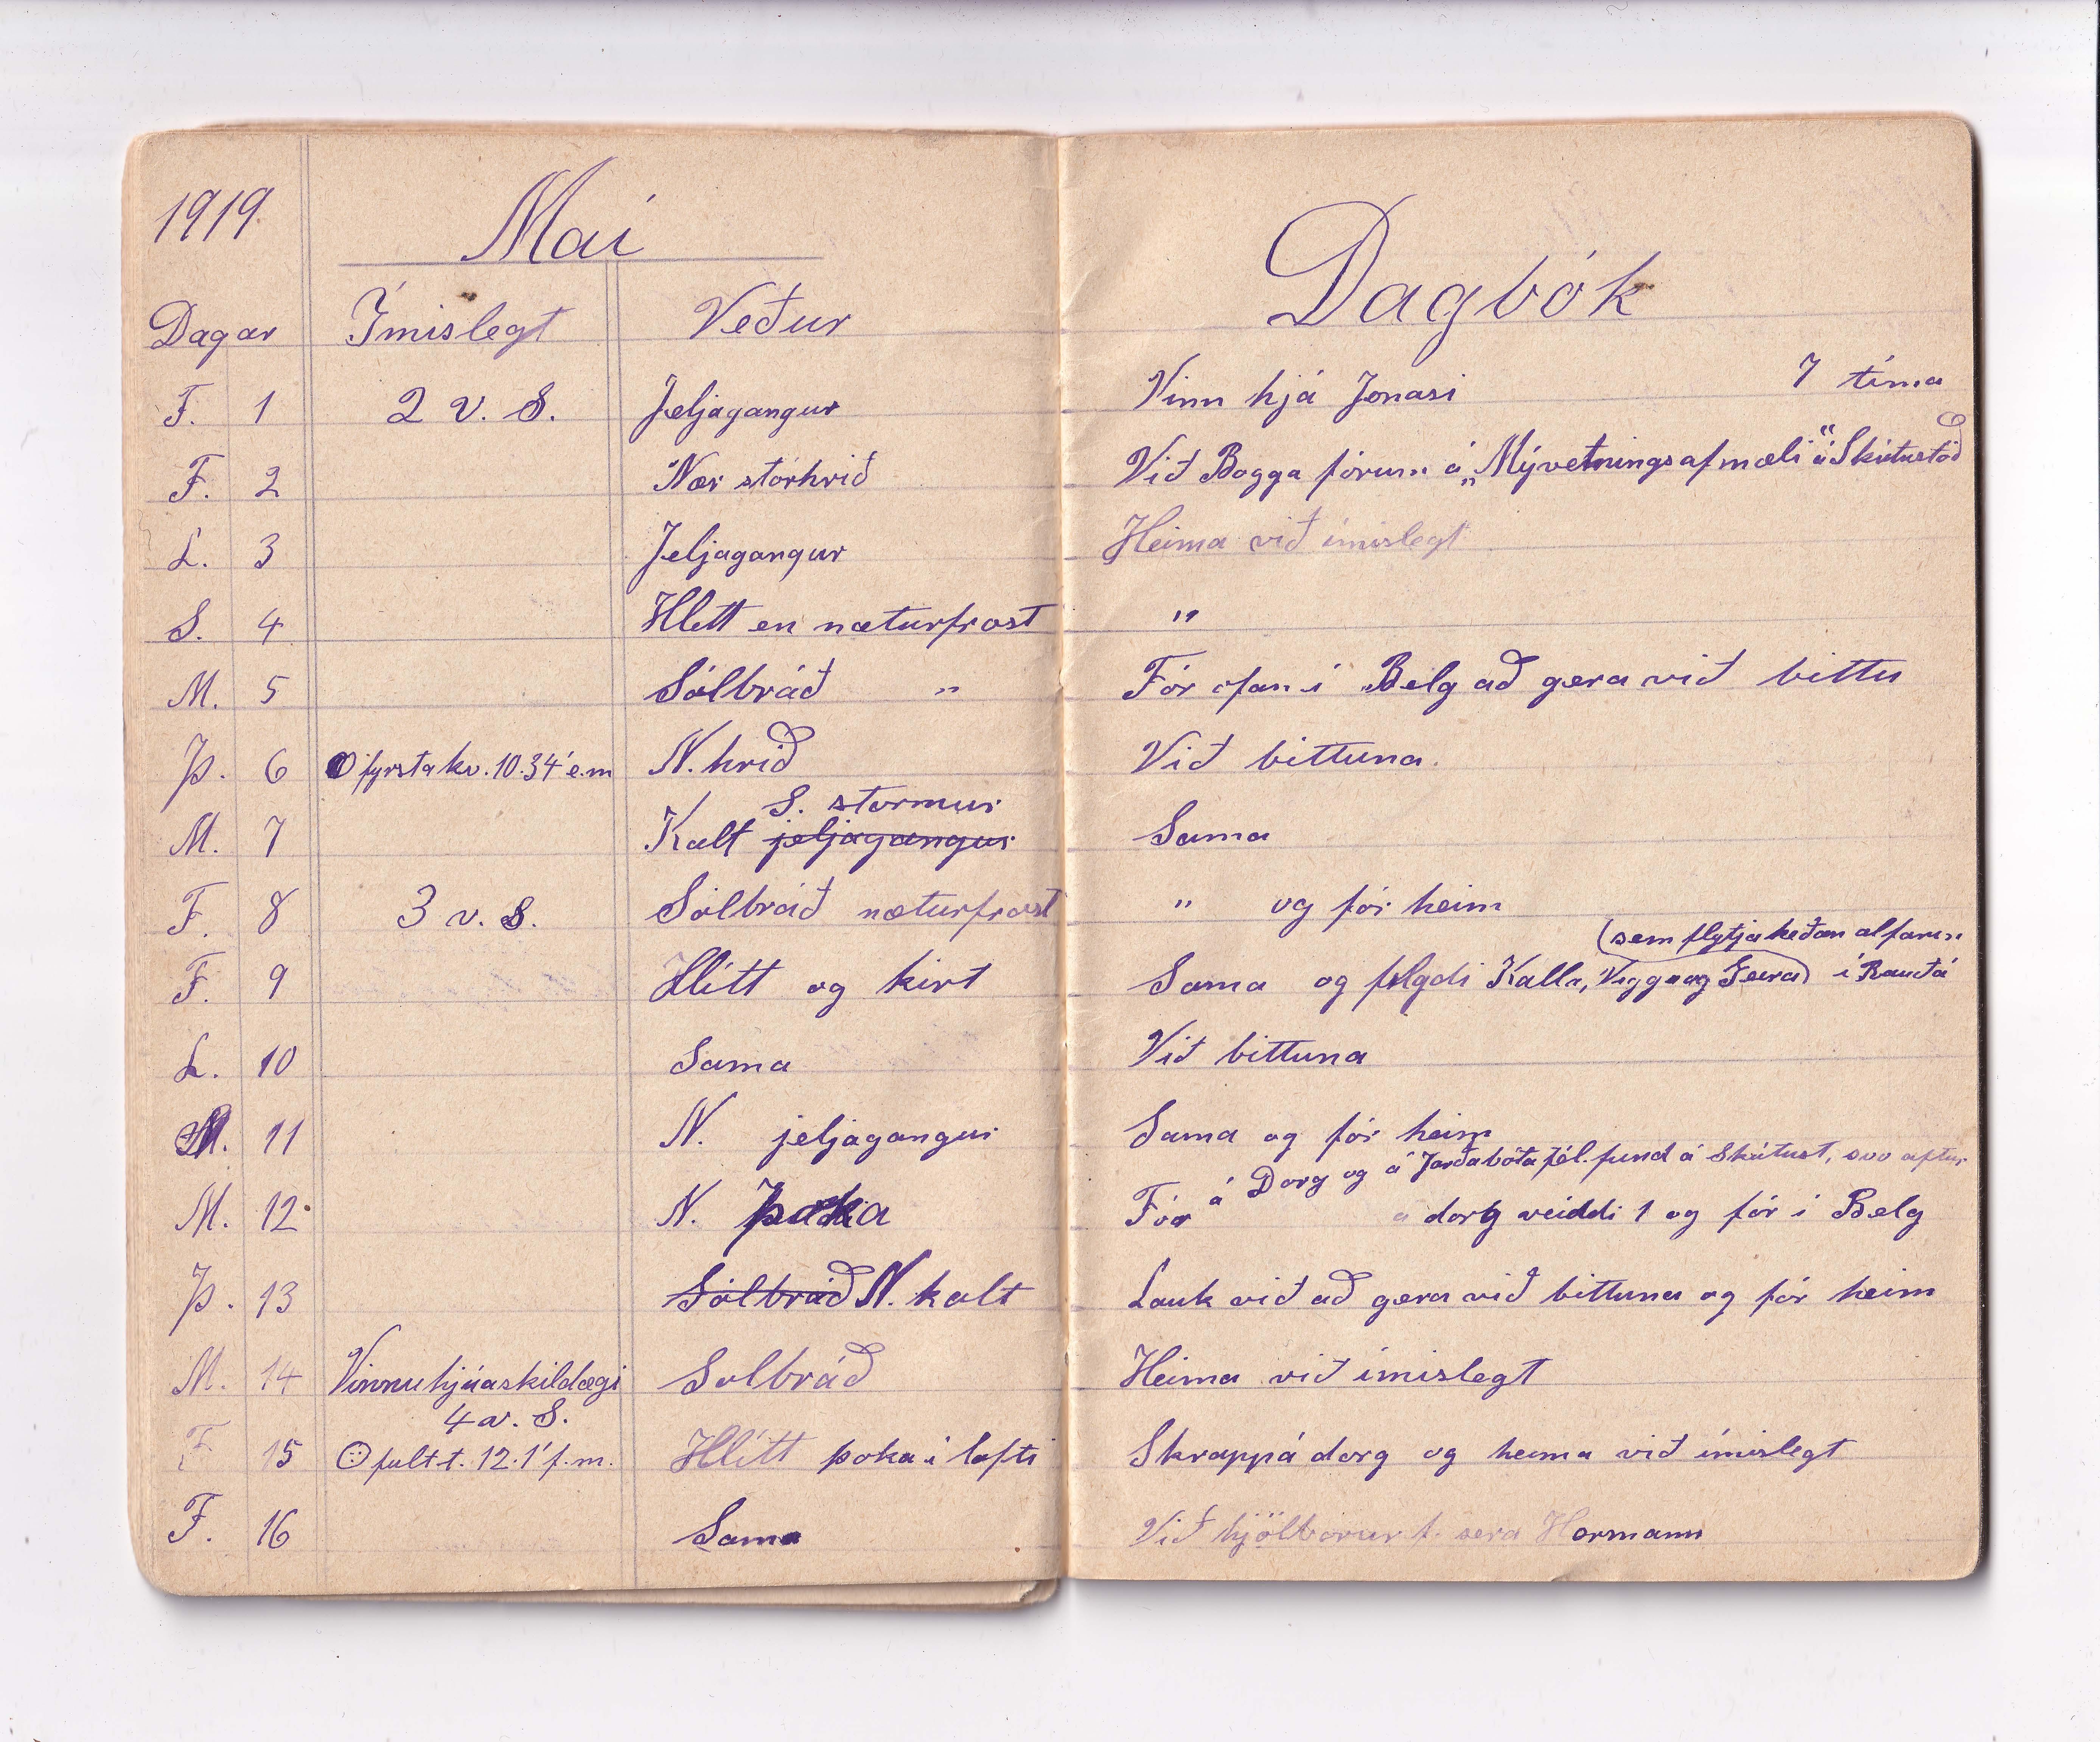 1919.
Maí
Dagar Ímislegt Veður
F. 1 2 v. S. Jeljagangur
F. 2 Nær stórhrið
L. 3 Jeljagangur
S. 4 Hlitt en næturfrost
M. 5 Sólbráð "
Þ. 6 fyrsta kv. 10.34' e.m N. hrið
S. stormur
M. 7 Kalt jeljagangur
F. 8 3 v. S. Sólbráð næturfrost
F. 9 Hlítt og kirt
L. 10 Sama
11 N. jeljagangur
M. 12 N. þoka
Þ. 13 Sólbráð N. kalt
M. 14 Vinnuhjúaskildagi Solbráð
4 v. S.
F 15 fult t. 12.1' f.m. Hlítt þoka í lofti
F. 16 Sama
Dagbók
Vinn hjá Jonasi 7 tíma
Við Bogga fórum á „Mývetningsafmæli" á Skútustöð
Heima við ímislegt
"
Fór ofan í Belg að gera við bittu
Við bittuna.
Sama
" og fór heim
(sem flytja heðan alfarin
Sama og fylgdi Kalla, Viggo og Geira) í Rauðá
Við bittuna
Sama og fór heim
Fór á Dorg og á Jarðabótafél. fund á Skútust, svo aftur
á dorg veiddi 1 og fór í Belg
Lauk við að gera við bittuna og fór heim
Heima við ímislegt
Skrapp á dorg og heima við ímislegt
Við hjólborur f. sera Hermann